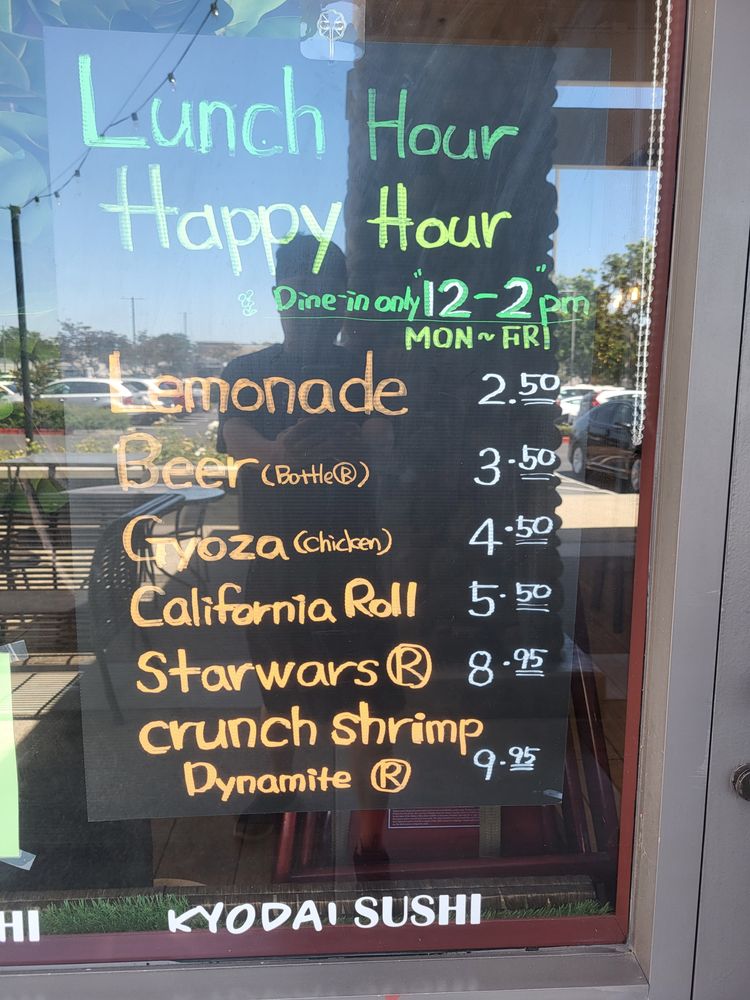 Lunch Hour
Happy Hour
Dine-in only "12-2" pm
MON~FRI
Lemonade 2.50
Beer (Bottle®) 3.50
Gyoza (chicken) 4.50
California Roll 5.50
Starwars ® 8.95
crunch shrimp
Dynamite ® 9.95
HI
KYODAI SUSHI